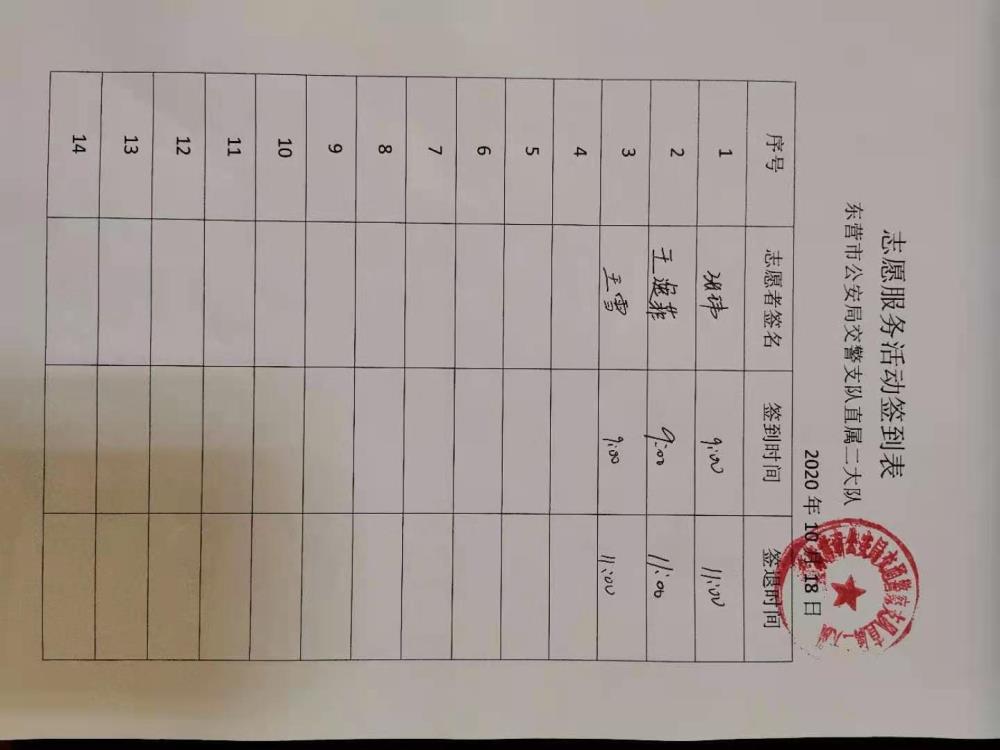 志愿服务活动签到表
东营市公安局交警支队直属二大队
2020 年 10 月 18 日
序号 志愿者签名 签到时间 签退时间
1 班玮 9:00 11:00
2 王逸菲 9:00 11:00
3 王雪 9:00 11:00
4
5
6
7
8
9
10
11
12
13
14